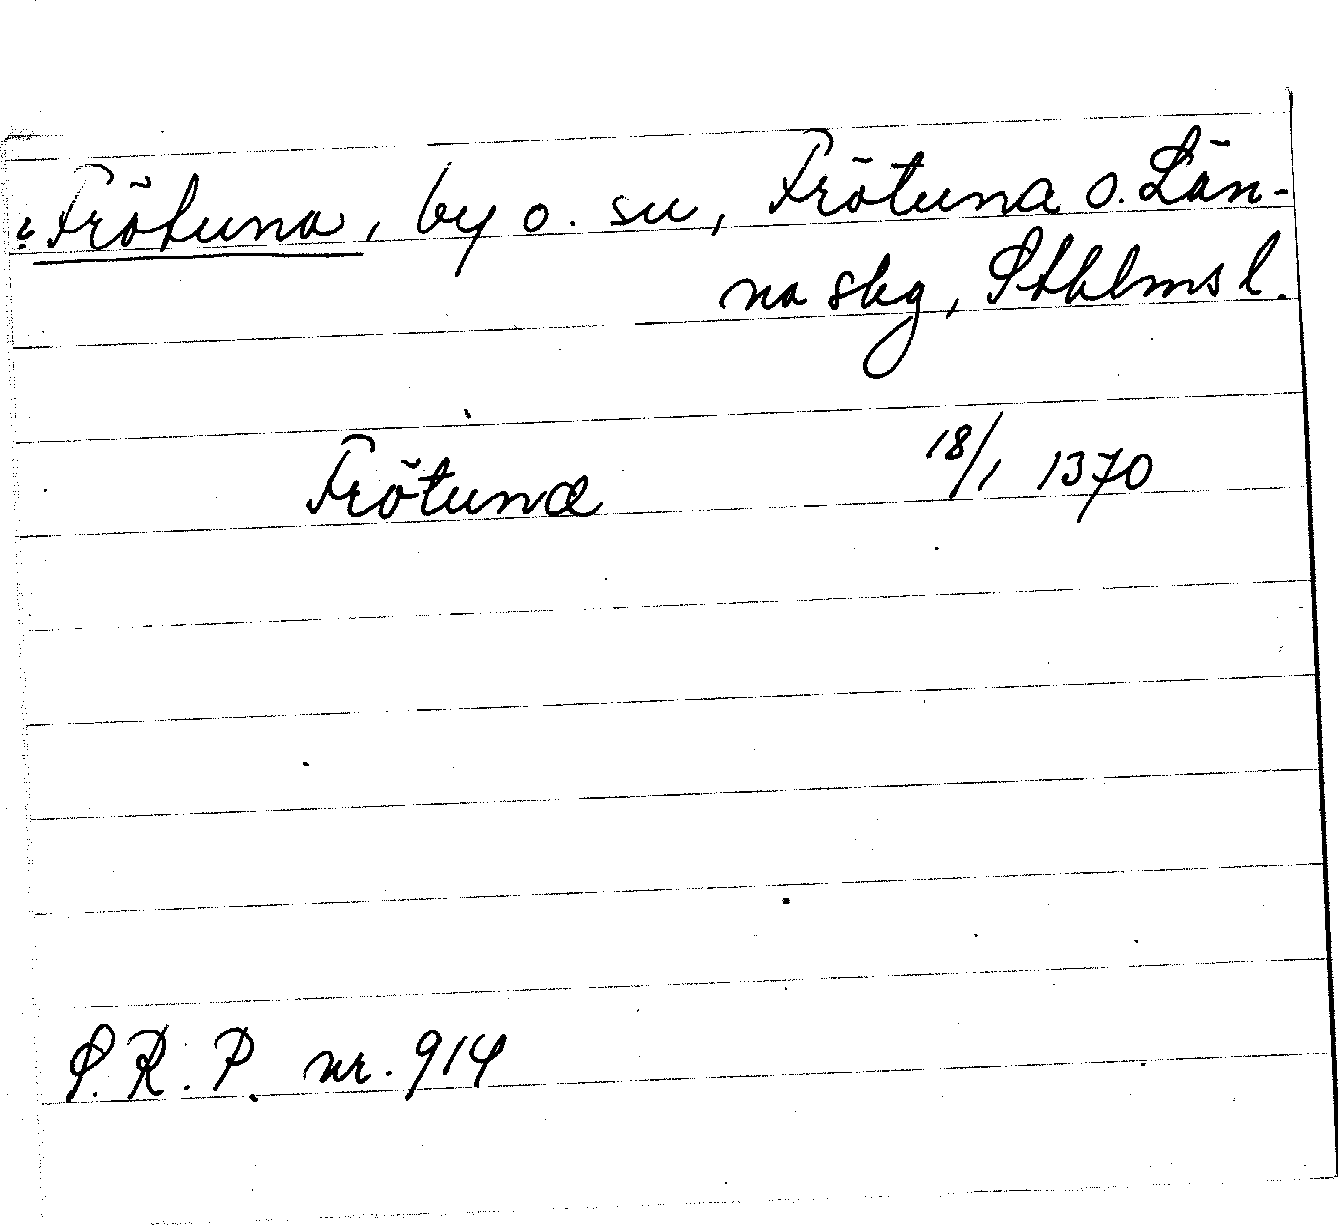 ? Frötuna, by o. su, Frötuna o. Län-
na skg, Sthlms l.
Frötunæ 18/1 1370
S.R.P. nr. 914